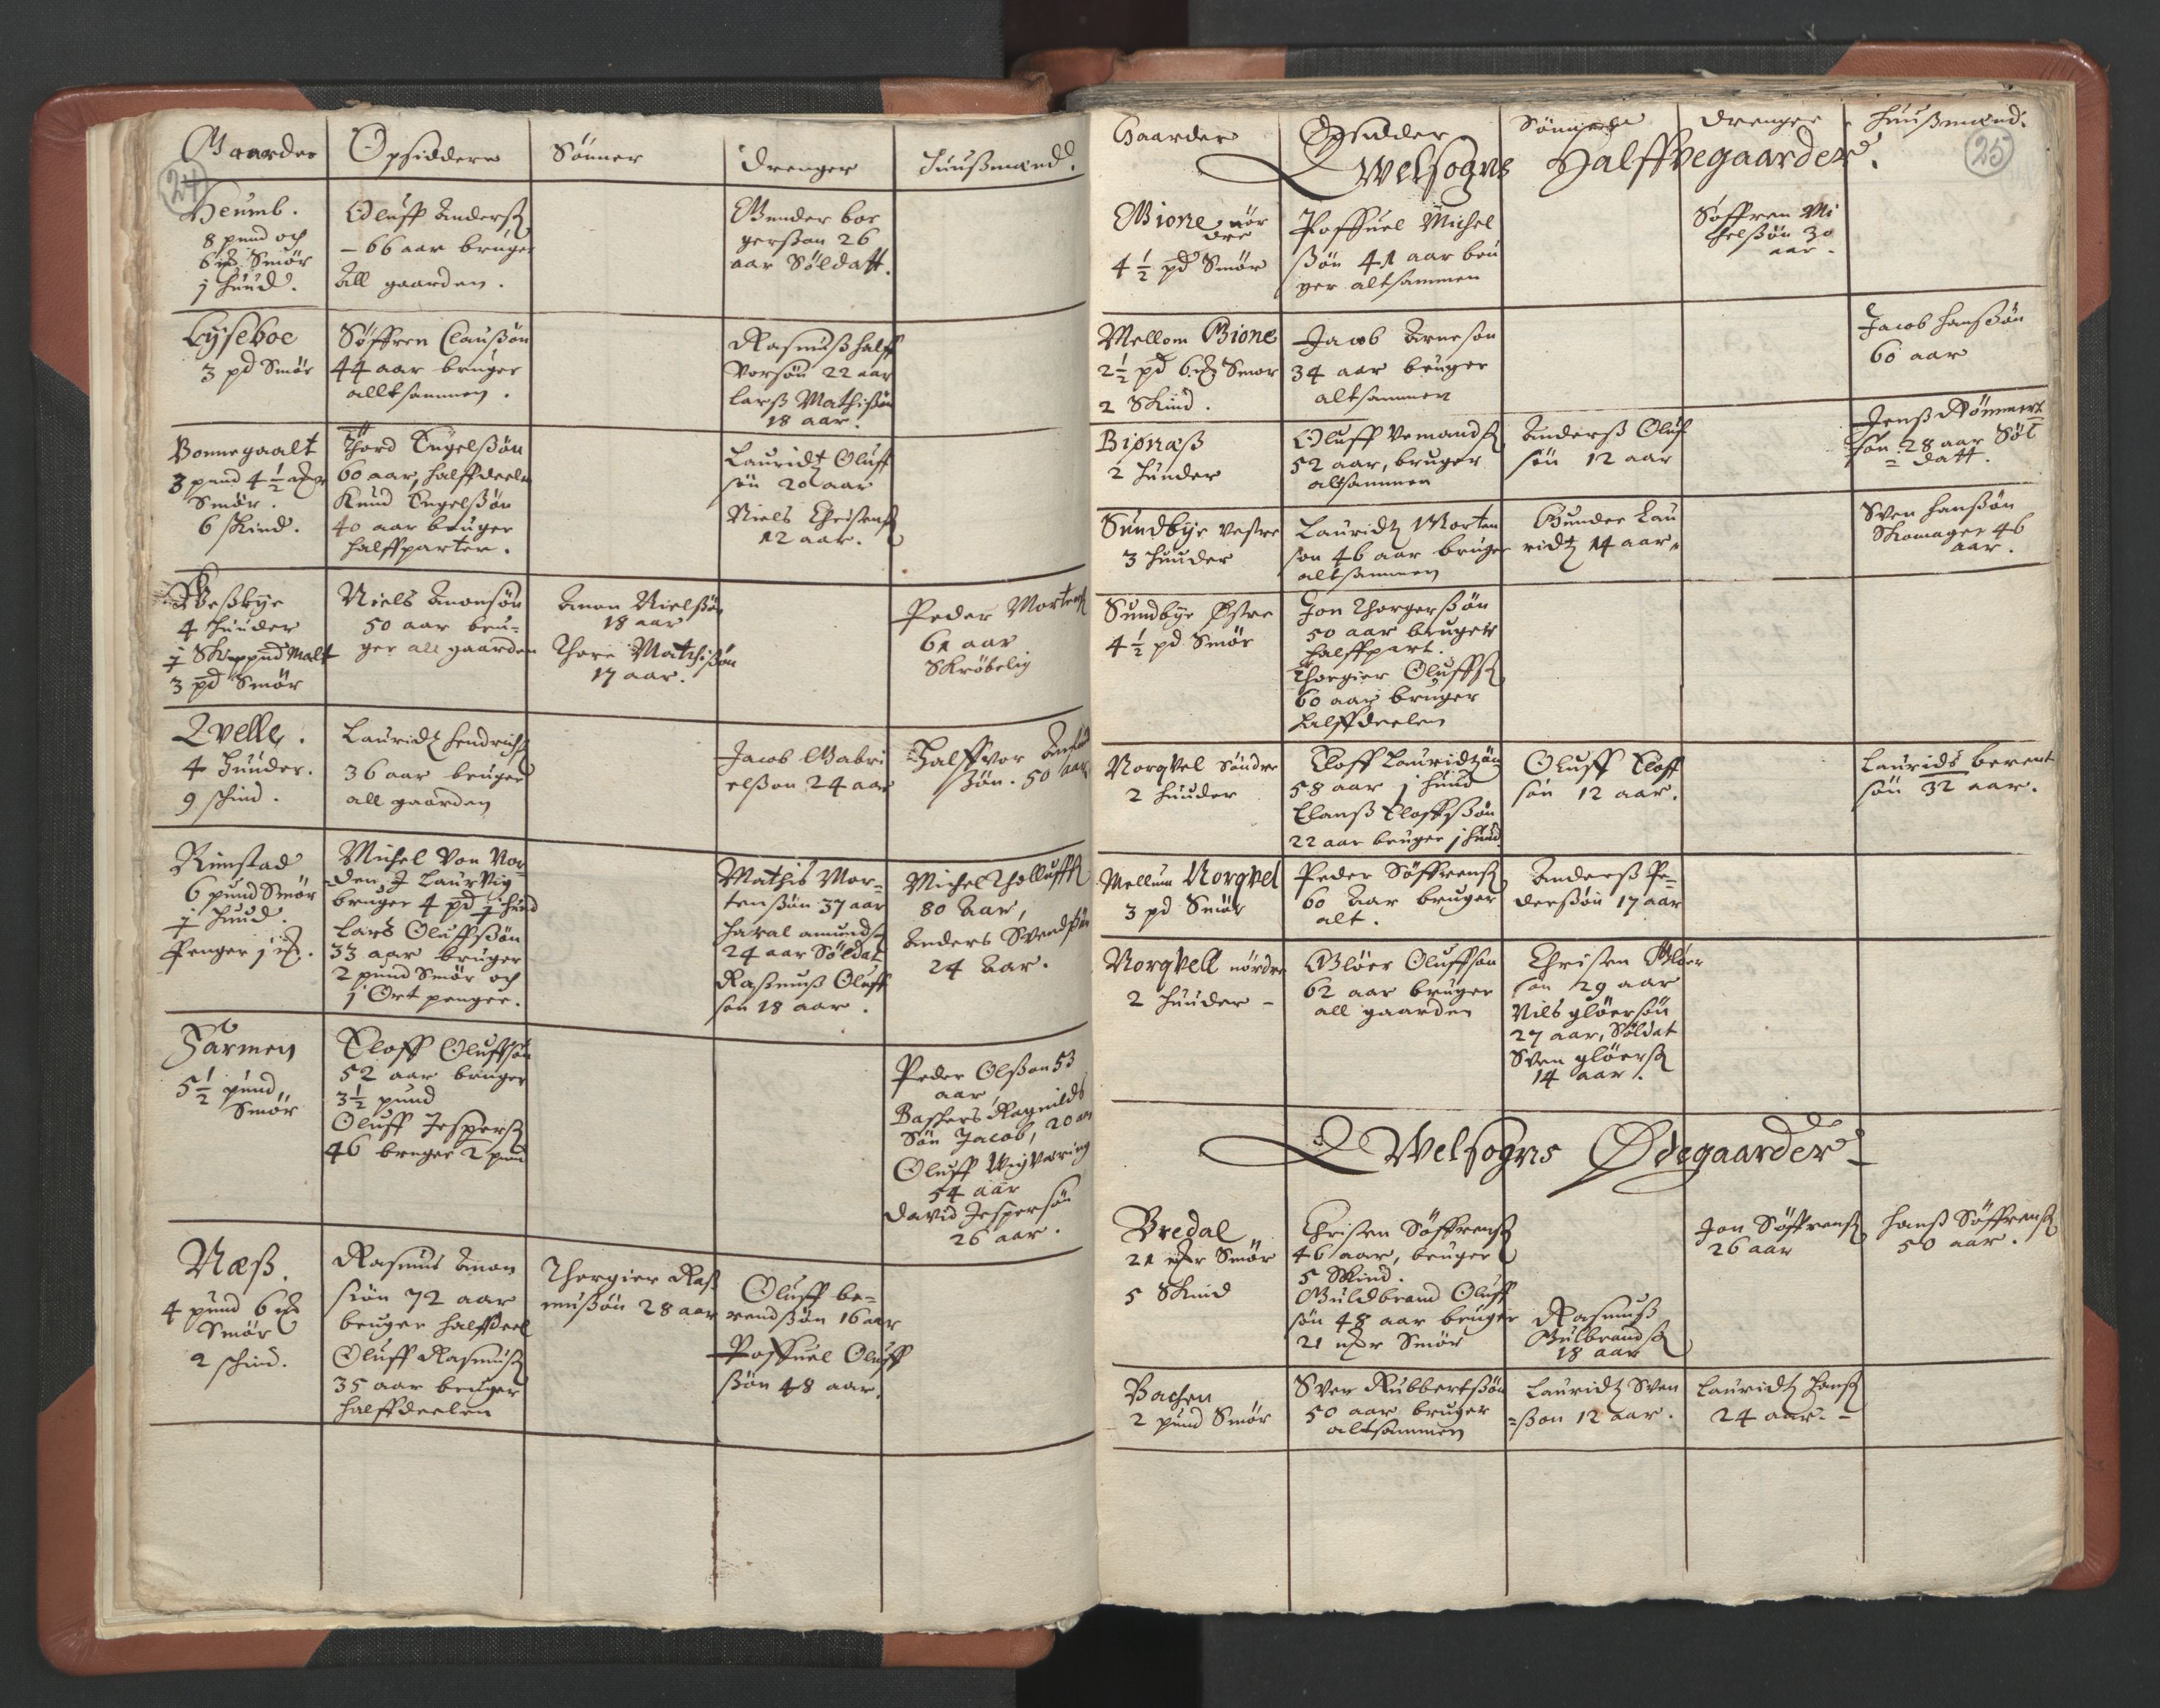 Gaarder Opsiddere Sønner Drenger Huußmænd.
24
Heumb.
8 pund och
6 Smør
j Huud.
Oluff Anderß
66 aar bruger
All gaarden.
Gunder bor
gerßøn 26
aar Søldatt.
Lyseboe
3 pd Smør
Søffren Claußøn
44 aar bruger
alltsammen.
Rasmuß Halff
vorsøn 22 aar
Larß Mathisøn
18 aar.
Bonnegaalt
3 pund 4½
Smør.
6 skind.
Thord Engelßøn
60 aar, halffdeelen
Knud Engelßøn
40 aar bruger
halffparten.
Lauridtz Oluff
søn 20 aar
Niels Christenß
12 aar.
4 Huuder
j Skippund Malt
3 pd Smør
Niels Amonsøn
50 aar bru-
ger all gaarden
Amon Nielßøn
18 aar
Thore Mathisøn
17 aar.
Peder Mortenß
61 aar
Skrøbelig
Qvelle.
4 Huuder.
9 schind.
Lauridtz Hendrichß
36 aar bruger
all gaarden
Jacob Gabri
elßøn 24 aar
Halffvor
ßøn. 50 aar
Rimstad
6 pund Smør
j Huud.
Penger j
Michel Von Vor-
den J Laurvig
bruger 4 pd j Huud
Lars Oluffsøn
33 aar bruger
2 pund Smør och
j Ort penger.
Mathis Mor-
tenßøn 37 aar
Haral amundß
24 aar Søldat
Rasmuß Oluff
søn 18 aar.
Michel Tholluffß
80 Aar,
Anders Svendsøn
24 Aar.
Farmen
5½ pund
Smør
Eloff Oluffsøn
52 aar bruger
3½ pund
Oluff Jesperß
46 bruger 2 pund
Peder Olßøn 53
aar
Ragnilds
Søn Jacob, 20 aar
Oluff
54 aar
David Jespersøn
26 aar.
Næß.
4 pund 6
Smør
2 schind.
Rasmus Amon
siøn 72 aar
bruger halffdeel
Oluff Rasmusß
35 aar bruger
halffdeelen
Thorgier Raß
mußøn 28 aar
Oluff be-
rendßøn 16 aar
Poffuel Oluff
ßøn 48 aar.
Gaarder Opsidder Sønner Drenger Huußmænd.
25
Qwelsogns Halffvegaarder.
Gione nør
dre
4½ pd Smør
Poffuel Michel
ßøn 41 aar bru
ger altsammen
Søffren Mi
chelßøn 30
aar.
Mellom Gione
2½ pd 6 Smør
2 Skind.
Jacob Arnesøn
34 aar bruger
altsammen
Jacob Hanßøn
60 aar
Biønaß
2 Huuder
Oluff Vemandß
52 aar, bruger
altsammen
Anderß Oluf
søn 12 aar
Jenß
søn 28 aar Søl
datt.
Sundbye Vestre
3 Huuder
Lauridtz Morten
søn 46 aar bruger
altsammen
Gunder Lau
ridtz 14 aar.
Sven Hanßøn
Skomager 46
aar.
Sundbye Østre
4½ pd Smør
Jon Thorgerßøn
50 aar bruger
halffpart.
Thorgier Oluffß
60 aar bruger
halffdeelen
Norqvel Søndre
2 Huuder
Eloff Lauridtzøn
58 aar j Huud
Clauß Eloffsøn
22 aar bruger j Huud
Oluff Eloff
søn 12 aar.
Laurids berent
søn 32 aar.
Mellum Norqvel
3 pd Smør
Peder Søffrenß
60 Aar bruger
alt.
Anderß Pe-
derßøn 17 aar
Norqvell nørdre
2 Huuder -
Gløer Oluffsøn
62 aar bruger
all gaarden
Christen Gløer
søn 29 aar
Nils gløersøn
27 aar, Søldat
Sven gløerß
14 aar.
Qwelsogns Ødegaarder
Bredal
21 Smør
5 Skind
Christen Søffrenß
46 aar, bruger
5 Skind.
Guldbrand Oluff
søn 48 aar bruger
21 Smør
Rasmuß
Gulbrandß
18 aar
Jon Søffrenß
26 aar
Hanß Søffrenß
50 aar.
Bachen
2 pund Smør
Sven Rubbertßøn
50 aar bruger
altsammen
Lauridtz Sven
ßøn 12 aar.
Lauridtz Hanß
24 aar.